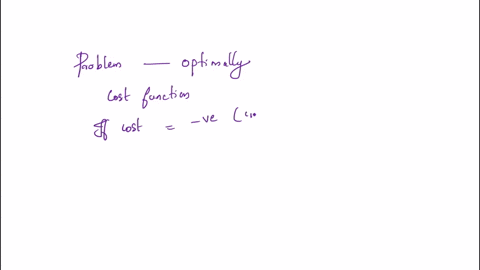 Problem — optimally
cost function
If cost = -ve (